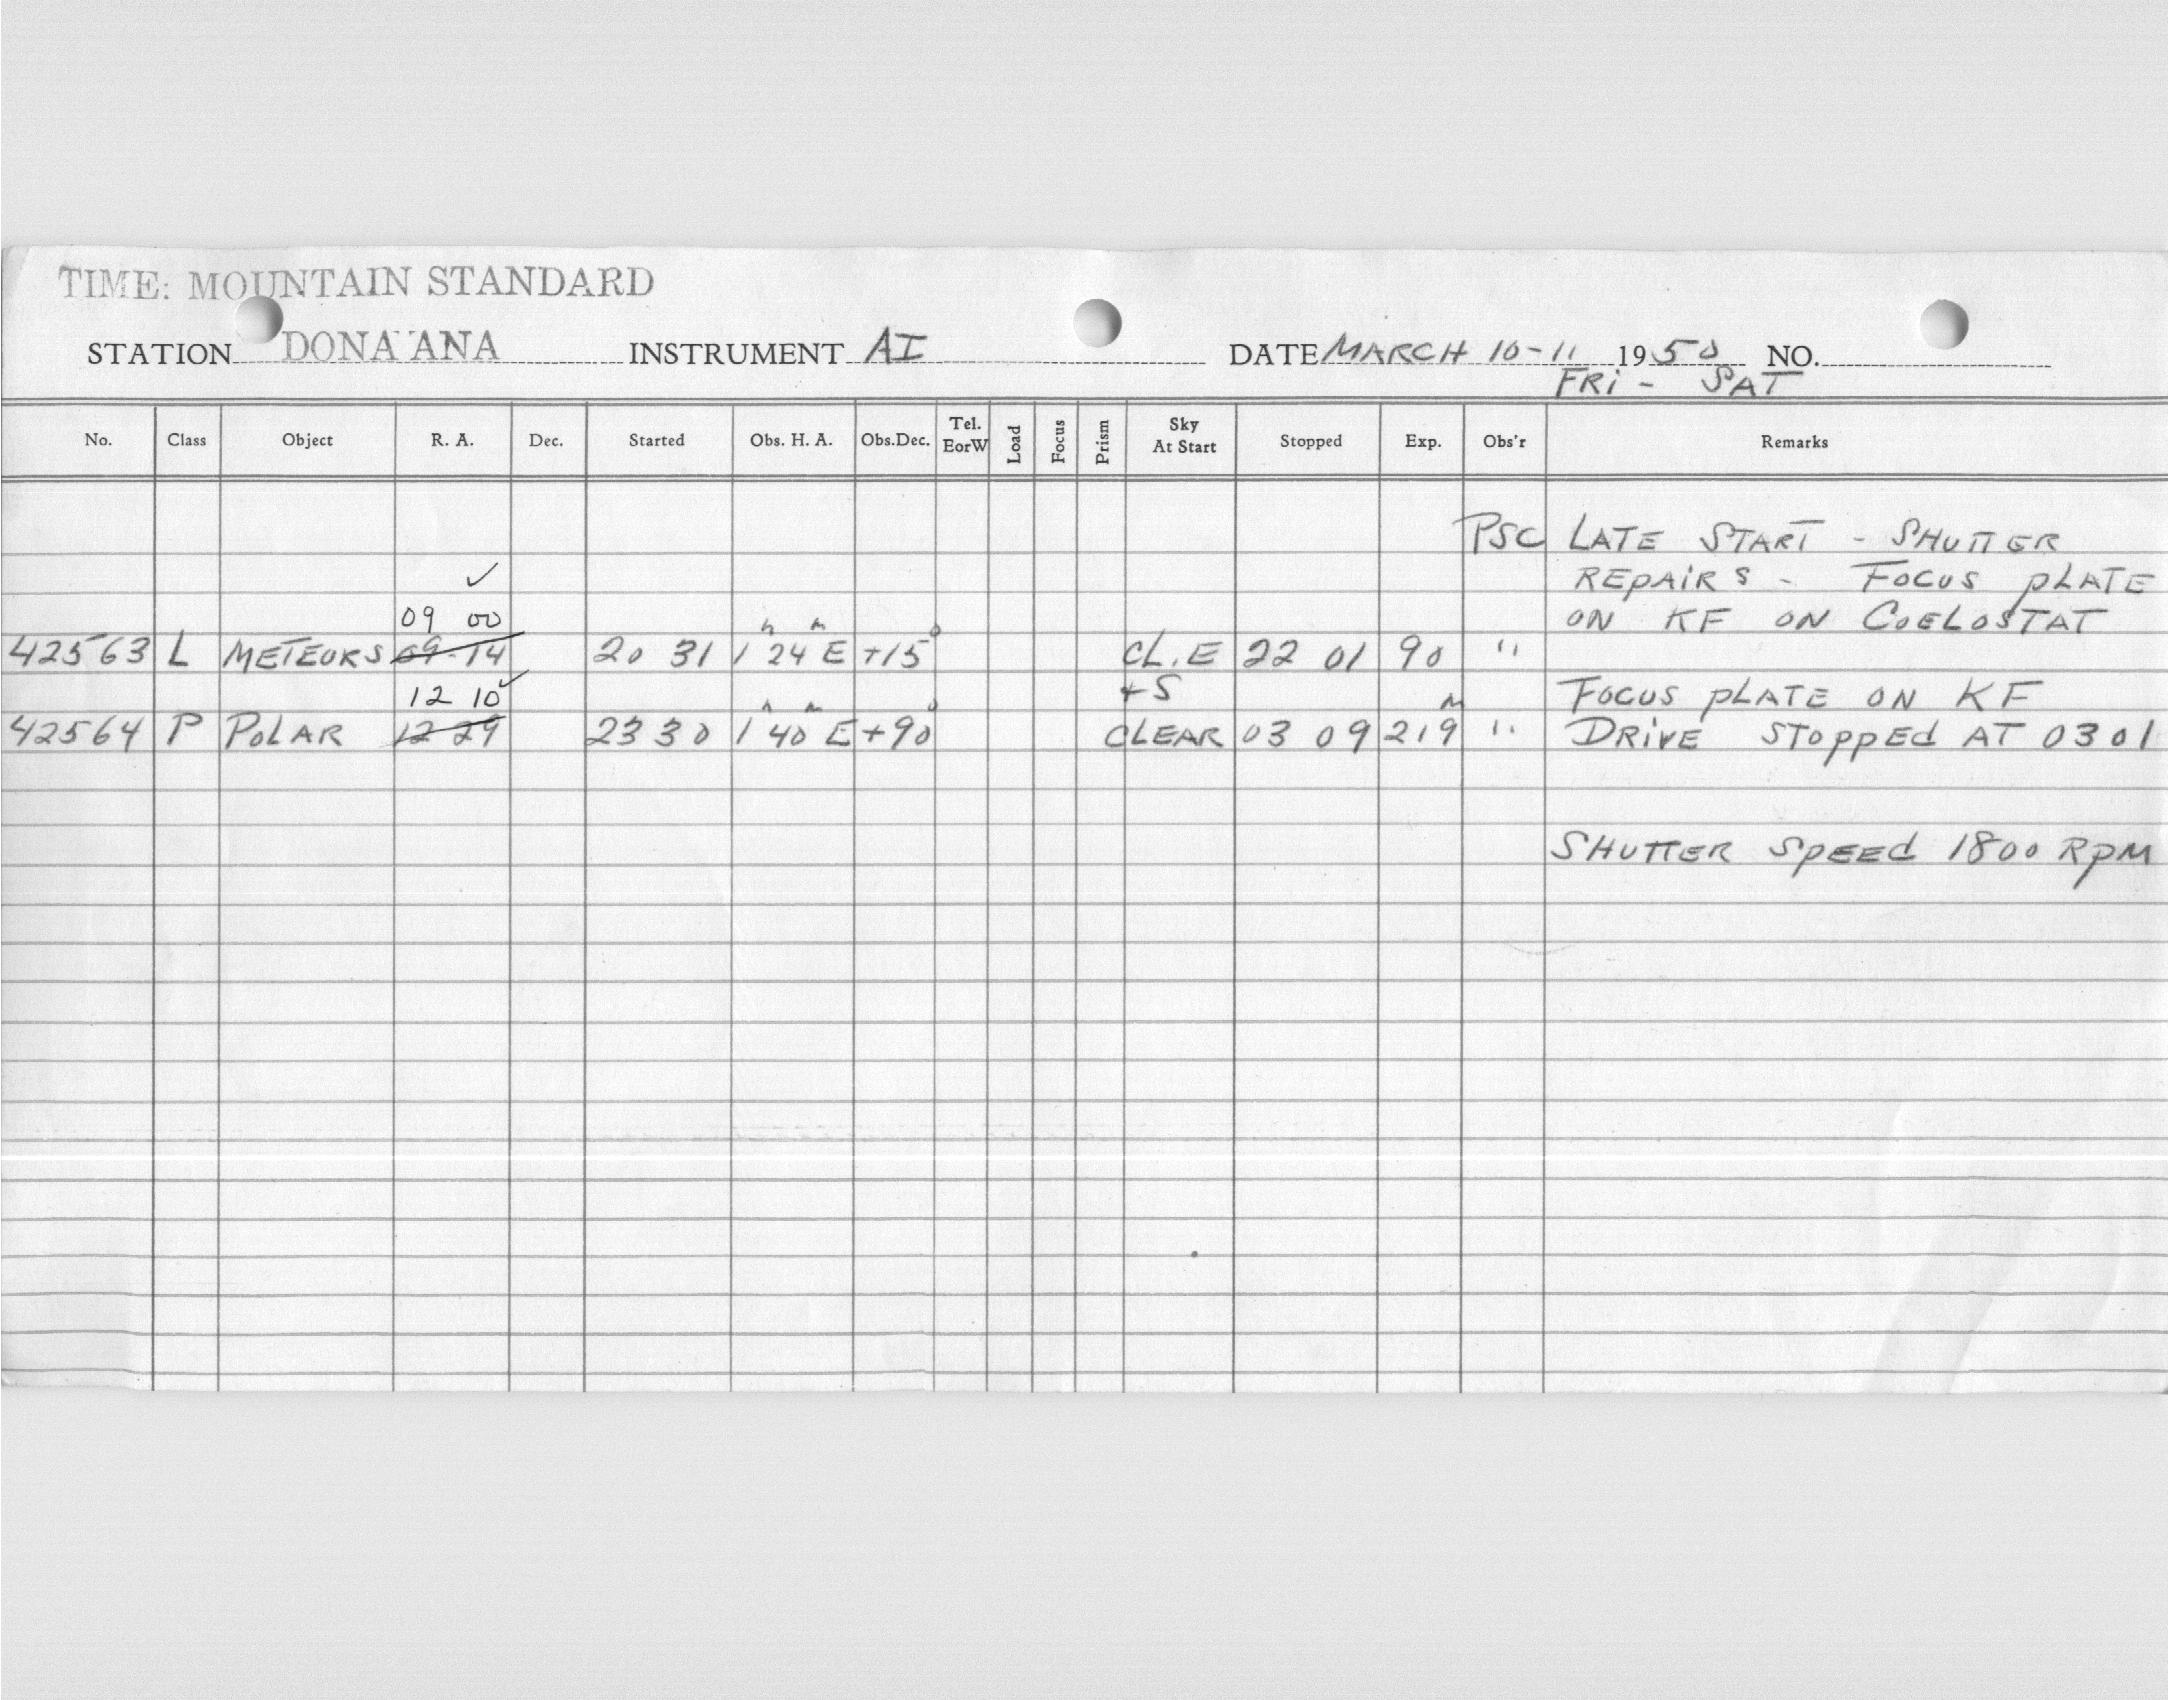 TIME: MOUNTAIN STANDARD
STATION DONA ANA INSTRUMENT AI DATE MARCH 10-11 1950 NO.
FRI - SAT
No. Class Object R. A. Dec. Started Obs. H. A. Obs.Dec. Tel. EorW Load Focus Prism Sky At Start Stopped Exp. Obs'r Remarks
PSC LATE START - SHUTTER
REPAIRS - FOCUS PLATE
09 00 ON KF ON COELOSTAT
42563 L METEORS 09 14 20 31 1h 24m E +15° CL. E 22 01 90 "
12 10 + S FOCUS PLATE ON KF
42564 P POLAR 12 29 23 30 1h 40m E +90° CLEAR 03 09 219m " DRIVE STOPPED AT 0301
SHUTTER SPEED 1800 RPM